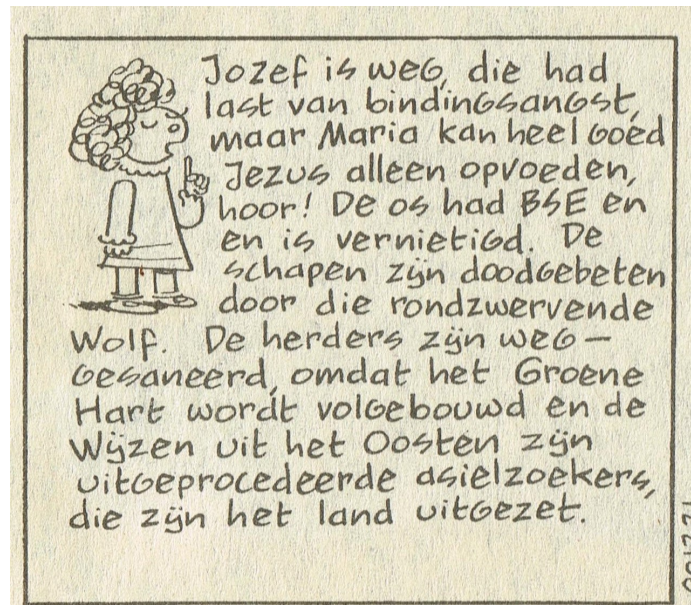 Jozef is weg, die had
last van bindingsangst,
maar Maria kan heel goed
Jezus alleen opvoeden,
hoor! De os had BSE en
en is vernietigd. De
schapen zijn doodgebeten
door die rondzwervende
Wolf. De herders zijn weg-
gesaneerd, omdat het Groene
Hart wordt volgebouwd en de
Wijzen uit het Oosten zijn
uitgeprocedeerde asielzoekers,
die zijn het land uitgezet.